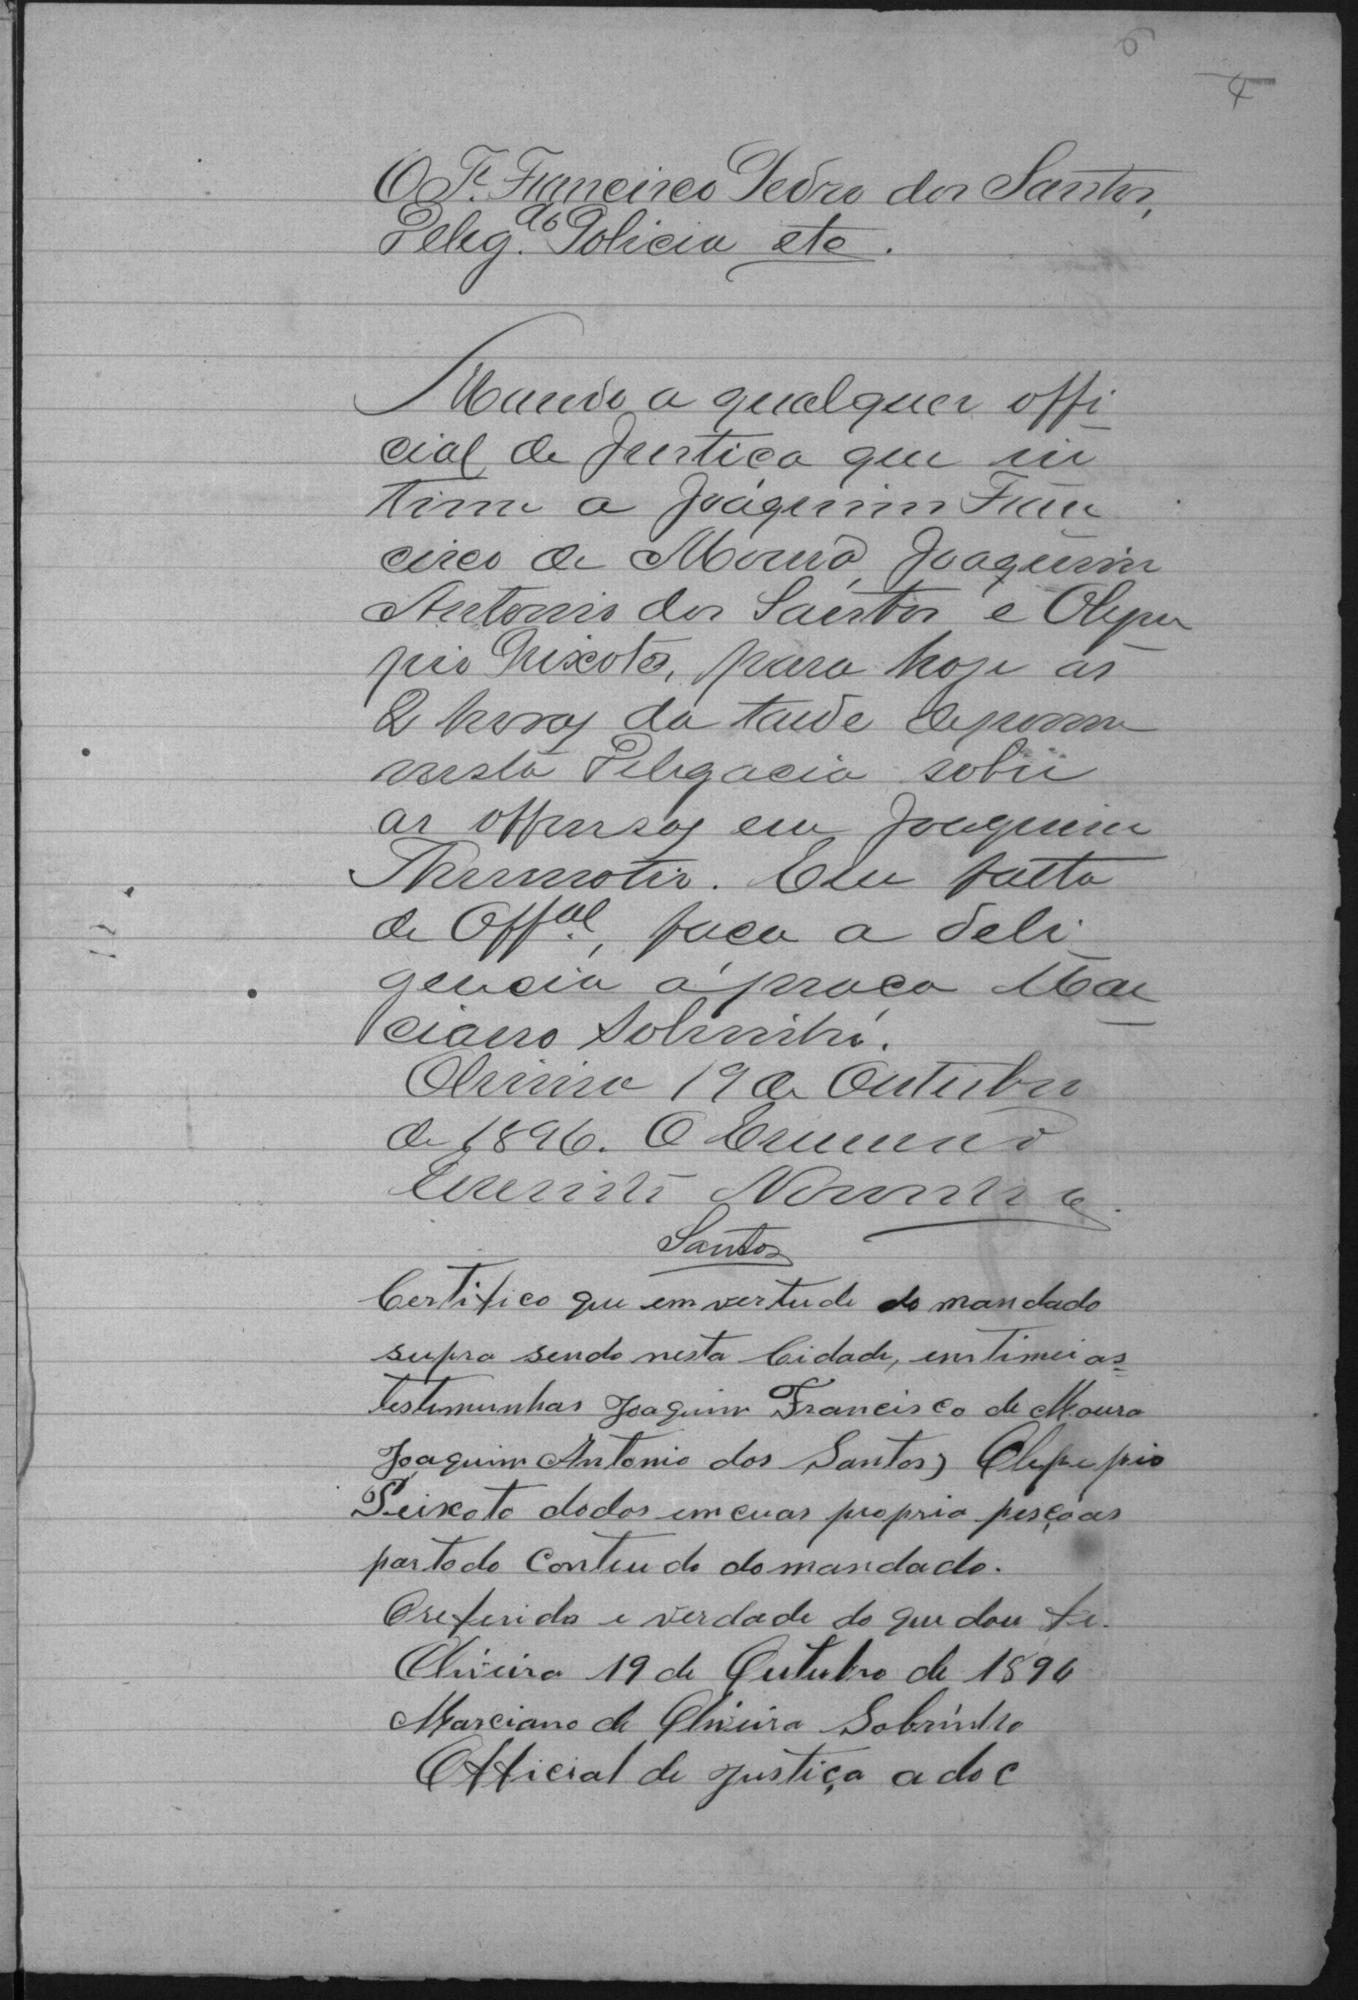 6
4
O Te. Francisco Pedro dos Santos,
Deleg.do Policia etc.
Mando a qualquer offi
cial de Justiça que in
time a Joaquim Fran
cisco de Moura, Joaquim
Antonio dos Santos e Olepu
pio Peixoto, para hoje as
2 horas da tarde deporem
nesta Delegacia sobre
as offensas em Joaquim
Em falta
de Offal., faça a deli
gencia a praça Mar
ciano Sobrinho.
Oliveira 19 de Outubro
de 1896. O Escrivão

Santos
Certifico que em vertude do mandado
supra sendo nesta Cidade, entimei as
testemunhas Joaquim Francisco de Moura
Joaquim Antonio dos Santos, Olepepio
Peixoto dodos em cuas propria pesçoas
par todo conteudo do mandado.
O referido e verdade do que dou fe.
Oliveira 19 de Outubro de 1896
Marciano de Oliveira Sobrinho
Official de justiça adoc